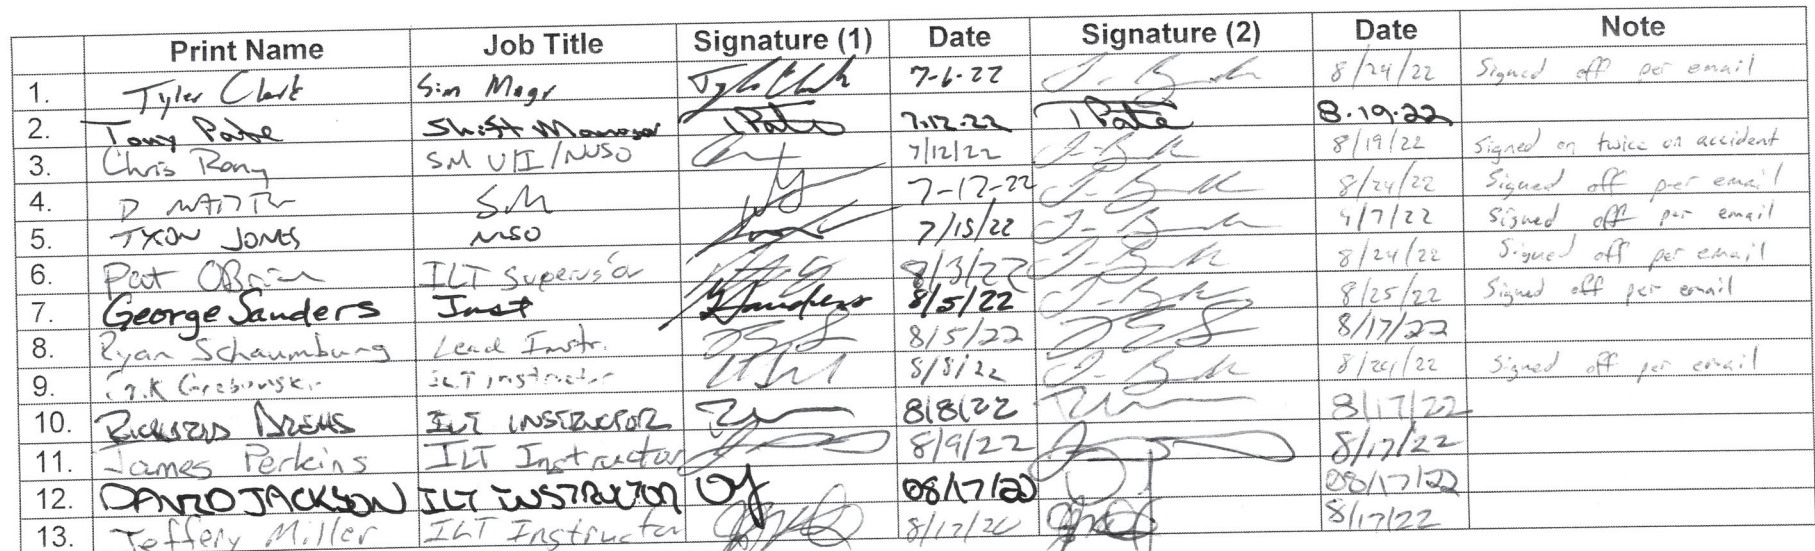 Print Name Job Title Signature (1) Date Signature (2) Date Note
1. Tyler Clark Sim Mngr Tyler Clark 7-6-22 8/24/22 Signed off per email
2. Tony Pate Shift Manager TPate 7.12.22 TPate 8.19.22
3. Chris Rony SM U/I/NUSO 7/12/22 8/19/22 Signed on twice on accident
4. D SM 7-17-22 8/24/22 Signed off per email
5. TYXON JONES NSO 7/15/22 4/7/22 Signed off per email
6. Pat OBrien ILT Supervisor 8/3/22 8/24/22 Signed off per email
7. George Sanders Inst GSanders 8/5/22 8/25/22 Signed off per email
8. Ryan Schaumburg Lead Instr. 8/5/22 8/17/22
9. Grabowski ILT instructor 8/8/22 8/24/22 Signed off per email
10. ILT INSTRUCTOR 8/8/22 8/17/22
11. James Perkins ILT Instructor 8/9/22 8/17/22
12. DAVID JACKSON ILT INSTRUCTOR DJ 08/17/22 DJ 08/17/22
13. Jeffery Miller ILT Instructor 8/17/22 8/17/22